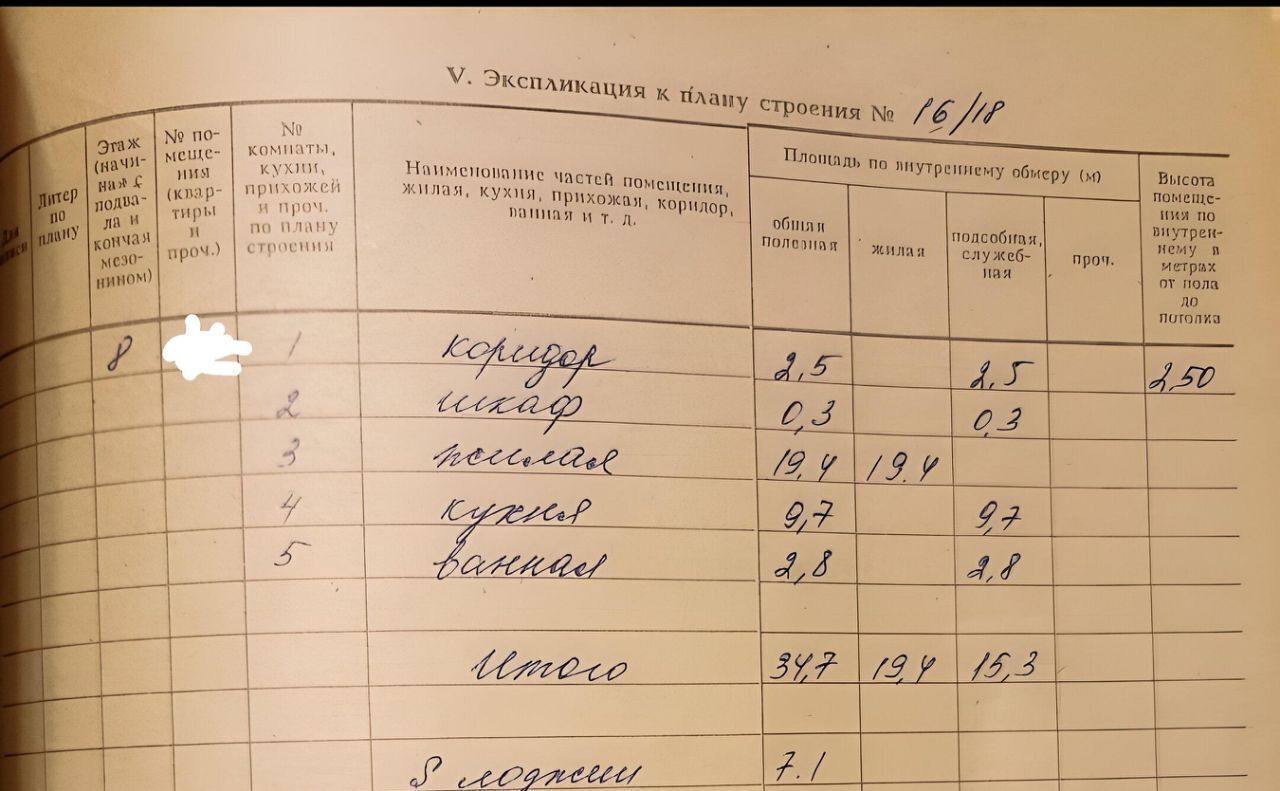 V. Экспликация к плану строения № 16/18
Литер по плану
Этаж (начиная с подвала и кончая мезонином)
№ помещения (квартиры и проч.)
№ комнаты, кухни, прихожей и проч. по плану строения
Наименование частей помещения, жилая, кухня, прихожая, коридор, ванная и т. д.
Площадь по внутреннему обмеру (м)
общая полезная
жилая
подсобная, служебная
проч.
Высота помещения по внутреннему в метрах от пола до потолка
8 1 коридор 2,5 2,5 2,50
2 шкаф 0,3 0,3
3 жилая 19,4 19.4
4 кухня 9,7 9,7
5 ванная 2,8 2,8
Итого 34,7 19,4 15,3
S лоджии 7.1